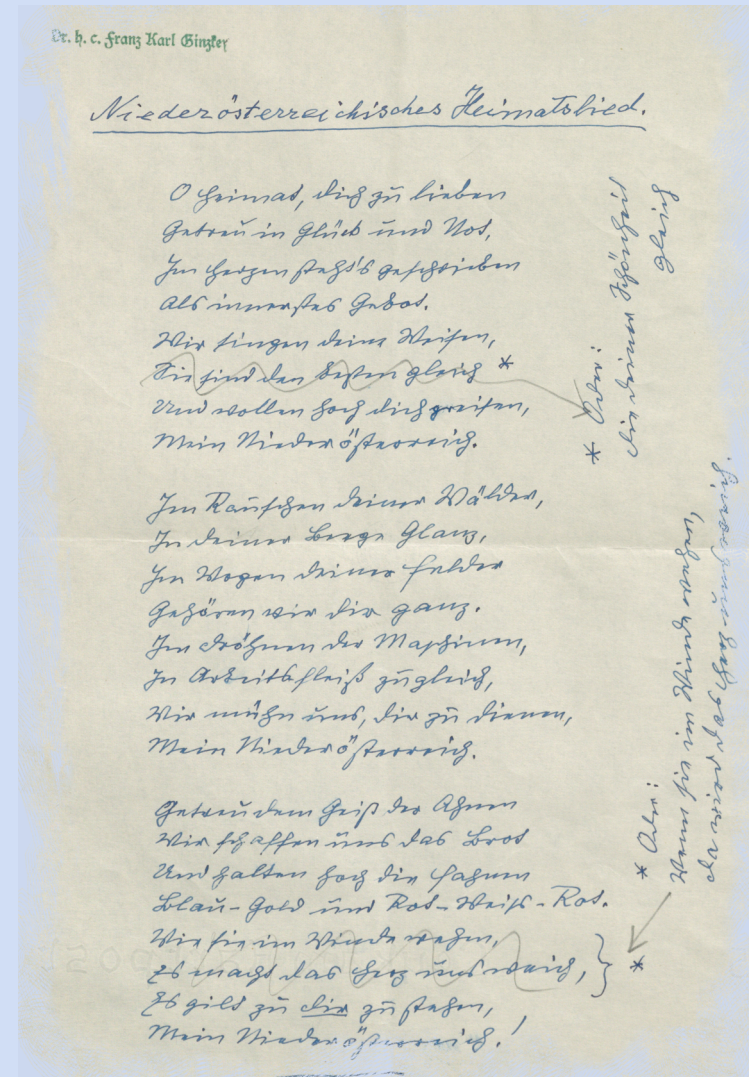 Dr. h. c. Franz Karl Ginzkey
Niederösterreichisches Heimatslied.
O Heimat, dich zu lieben
Getreu in Glück und Not,
Im Herzen steht's geschrieben
Als innerstes Gebot.
Wir singen deine Weisen,
Sie sind den besten gleich *
Und wollen hoch dich preisen,
Mein Niederösterreich.
* Oder:
Die deiner Schönheit
gleich
Im Rauschen deiner Wälder,
In deiner Berge Glanz,
Im Wogen deiner Felder
Gehören wir dir ganz.
Im Dröhnen der Maschinen,
In Arbeitsfleiß zugleich,
Wir mühn uns, dir zu dienen,
Mein Niederösterreich.
Getreu dem Geist der Ahnen
Wir schaffen uns das Brot
Und halten hoch die Fahnen
Blau-Gold und Rot-Weiss-Rot.
Wie sie im Winde wehn,
Es macht das Herz uns weich,
Es gilt zu dir zu stehen,
Mein Niederösterreich!
*
* Oder:
Wenn sie im Winde wehen,
Da wird das Herz uns weich,